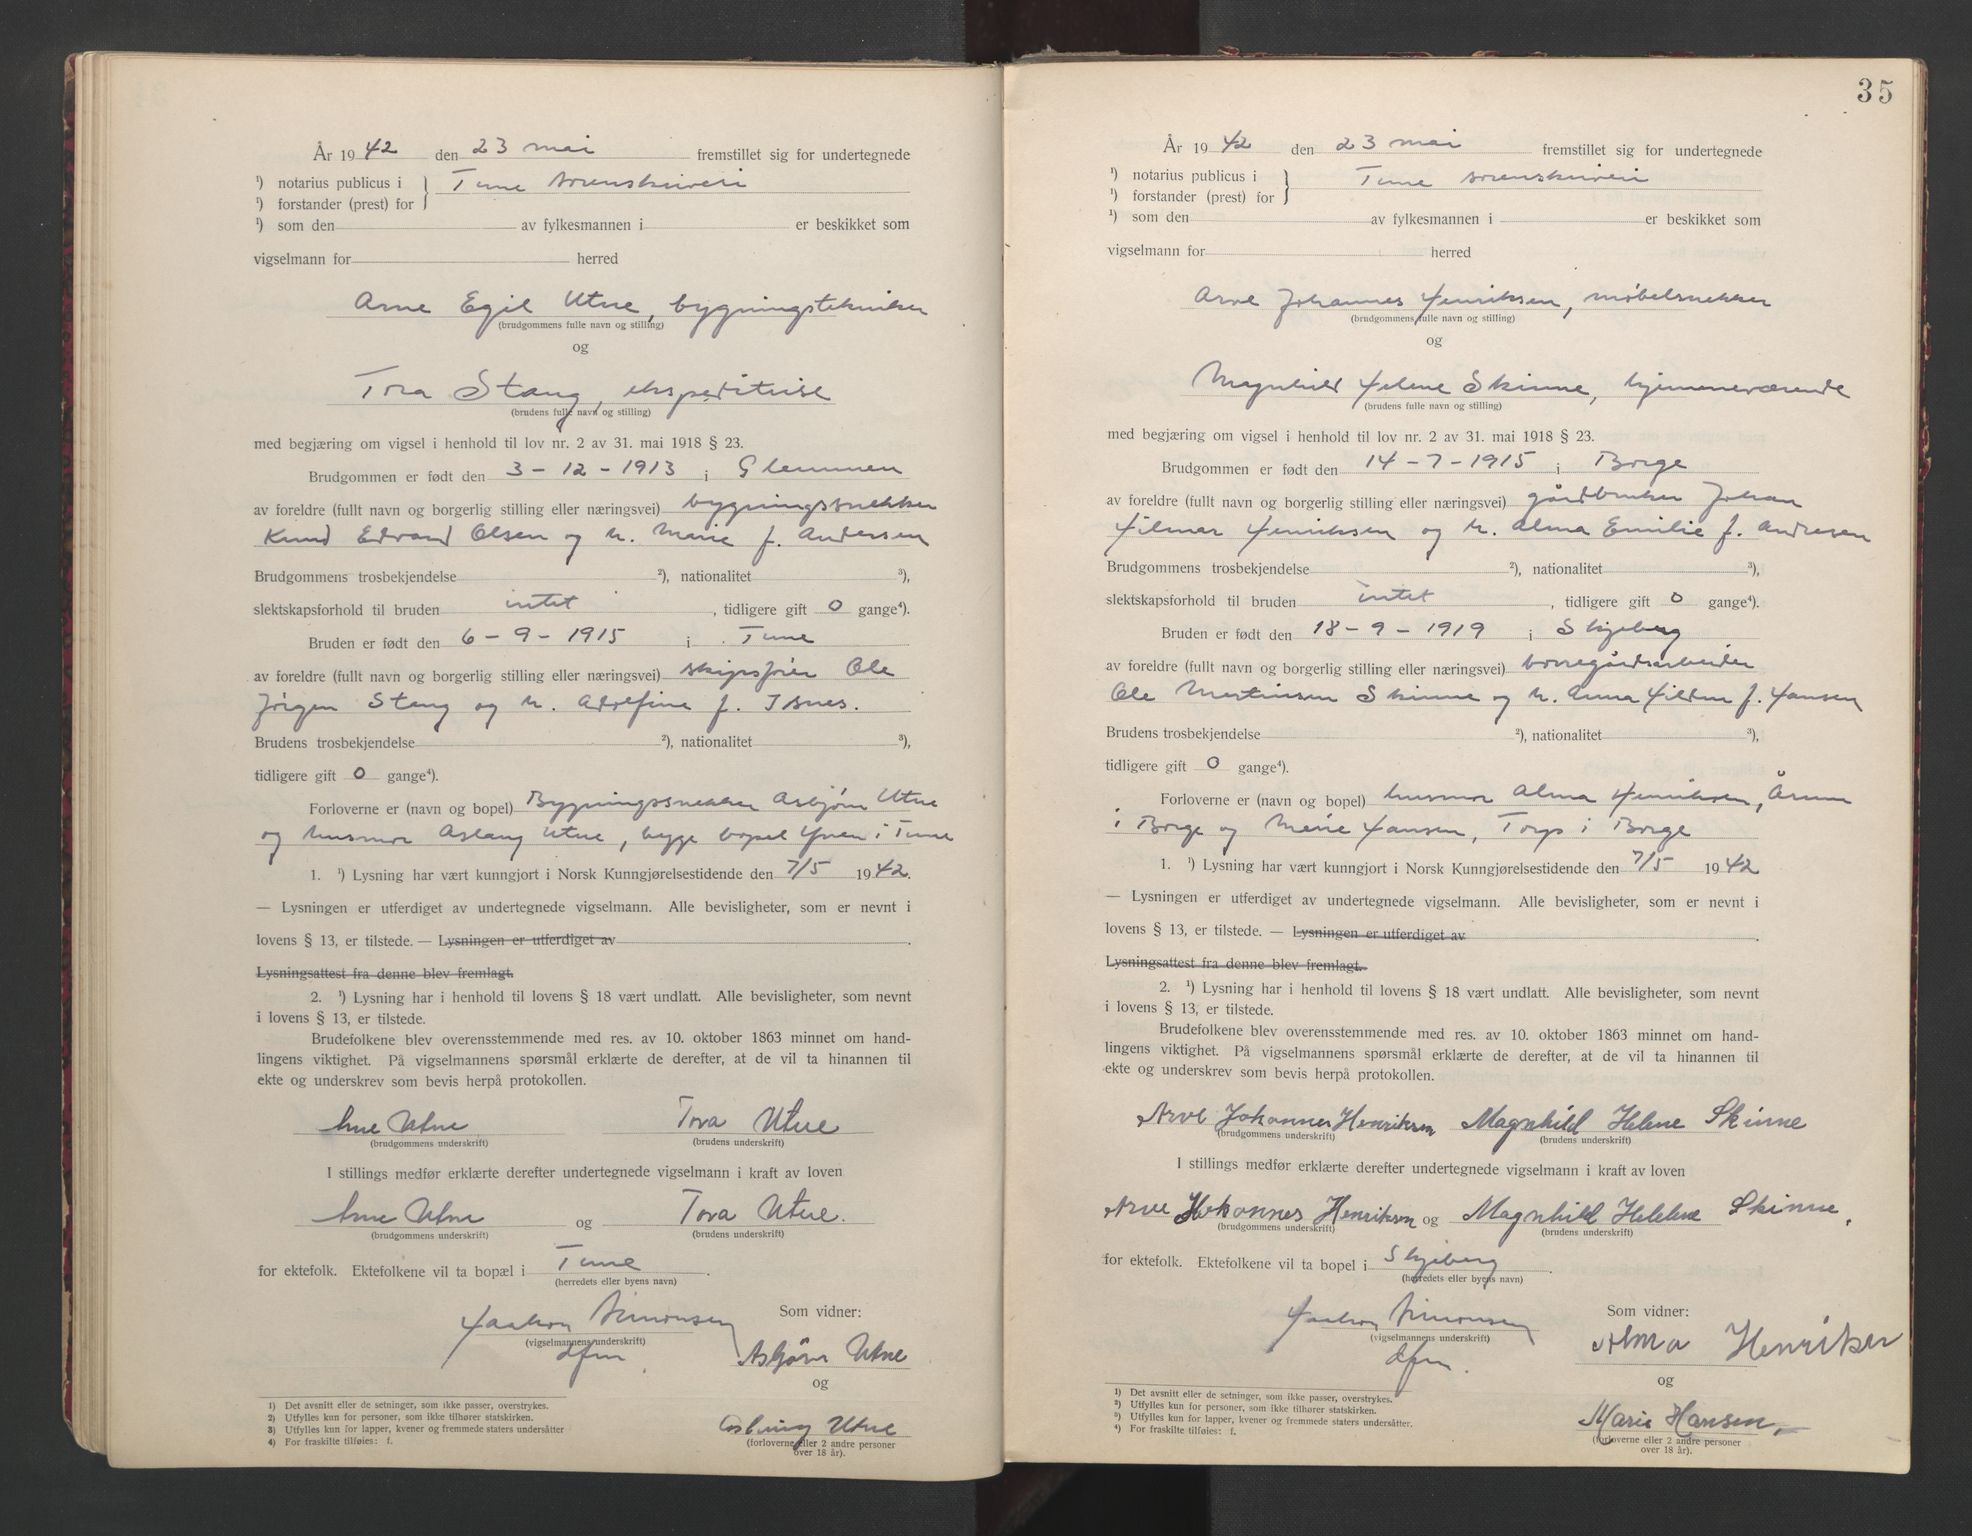 År 1942 den 23 mai fremstillet sig for undertegnede
¹) notarius publicus i } Tune sorenskriveri
¹) forstander (prest) for
¹) som den av fylkesmannen i er beskikket som
vigselmann for herred
Arne Egil Utne, bygningstekniker
(brudgommens fulle navn og stilling)
og
Tora Stang, ekspeditrise
(brudens fulle navn og stilling)
med begjæring om vigsel i henhold til lov nr. 2 av 31. mai 1918 § 23.
Brudgommen er født den 3-12-1913 i Glemmen
av foreldre (fullt navn og borgerlig stilling eller næringsvei) bygningssnekker
Knud Edvard Olsen og h. Marie f. Andersen
Brudgommens trosbekjendelse ²), nationalitet ³),
slektskapsforhold til bruden intet, tidligere gift 0 gange⁴).
Bruden er født den 6-9-1915 i Tune
av foreldre (fullt navn og borgerlig stilling eller næringsvei) skipsfører Ole
Jörgen Stang og h. Adolfine f. Isnes.
Brudens trosbekjendelse ²), nationalitet ³),
tidligere gift 0 gange⁴).
Forloverne er (navn og bopel) Bygningssnekker Asbjörn Utne
og husmor Aslaug Utne, begge bopel Yven i Tune
1. ¹) Lysning har vært kunngjort i Norsk Kunngjørelsestidende den 7/5 1942.
— Lysningen er utferdiget av undertegnede vigselmann. Alle bevisligheter, som er nevnt i
lovens § 13, er tilstede. — Lysningen er utferdiget av .
Lysningsattest fra denne blev fremlagt.
2. ¹) Lysning har i henhold til lovens § 18 vært undlatt. Alle bevisligheter, som nevnt
i lovens § 13, er tilstede.
Brudefolkene blev overensstemmende med res. av 10. oktober 1863 minnet om hand-
lingens viktighet. På vigselmannens spørsmål erklærte de derefter, at de vil ta hinannen til
ekte og underskrev som bevis herpå protokollen.
Arne Utne Tora Utne
(brudgommens underskrift) (brudens underskrift)
I stillings medfør erklærte derefter undertegnede vigselmann i kraft av loven
Arne Utne og Tora Utne.
(brudgommens underskrift) (brudens underskrift)
for ektefolk. Ektefolkene vil ta bopæl i Tune.
(herredets eller byens navn)
Haakon Simonsen Som vidner:
(vigselmannens underskrift)
dfm. Asbjörn Utne
og
Aslaug Utne
(forloverne eller 2 andre personer
over 18 år).
1) Det avsnitt eller de setninger, som ikke passer, overstrykes.
2) Utfylles kun for personer, som ikke tilhører statskirken.
3) Utfylles kun for lapper, kvener og fremmede staters undersåtter
4) For fraskilte tilføies: f.
35
År 1942 den 23 mai fremstillet sig for undertegnede
¹) notarius publicus i } Tune sorenskriveri
¹) forstander (prest) for
¹) som den av fylkesmannen i er beskikket som
vigselmann for herred
Arve Johannes Henriksen, møbelsnekker
(brudgommens fulle navn og stilling)
og
Magnhild Helene Skinne, hjemmeværende
(brudens fulle navn og stilling)
med begjæring om vigsel i henhold til lov nr. 2 av 31. mai 1918 § 23.
Brudgommen er født den 14-7-1915 i Borge
av foreldre (fullt navn og borgerlig stilling eller næringsvei) gårdbruker Johan
Hilmar Henriksen og h. Alma Emilie f. Andresen
Brudgommens trosbekjendelse ²), nationalitet ³),
slektskapsforhold til bruden intet, tidligere gift 0 gange⁴).
Bruden er født den 18-9-1919 i Skjeberg
av foreldre (fullt navn og borgerlig stilling eller næringsvei) borregårdsarbeider
Ole Martinsen Skinne og h. Anna Hildur f. Hansen
Brudens trosbekjendelse ²), nationalitet ³),
tidligere gift 0 gange⁴).
Forloverne er (navn og bopel) husmor Alma Henriksen, Årum
i Borge og Marie Hansen, Torp i Borge
1. ¹) Lysning har vært kunngjort i Norsk Kunngjørelsestidende den 7/5 1942
— Lysningen er utferdiget av undertegnede vigselmann. Alle bevisligheter, som er nevnt i
lovens § 13, er tilstede. — Lysningen er utferdiget av .
Lysningsattest fra denne blev fremlagt.
2. ¹) Lysning har i henhold til lovens § 18 vært undlatt. Alle bevisligheter, som nevnt
i lovens § 13, er tilstede.
Brudefolkene blev overensstemmende med res. av 10. oktober 1863 minnet om hand-
lingens viktighet. På vigselmannens spørsmål erklærte de derefter, at de vil ta hinannen til
ekte og underskrev som bevis herpå protokollen.
Arve Johannes Henriksen Magnhild Helene Skinne
(brudgommens underskrift) (brudens underskrift)
I stillings medfør erklærte derefter undertegnede vigselmann i kraft av loven
Arve Johannes Henriksen og Magnhild Helene Skinne.
(brudgommens underskrift) (brudens underskrift)
for ektefolk. Ektefolkene vil ta bopel i Skjeberg.
(herredets eller byens navn)
Haakon Simonsen Som vidner:
(vigselmannens underskrift)
dfm. Alma Henriksen
og
Marie Hansen
(forloverne eller 2 andre personer
over 18 år).
¹) Det avsnitt eller de setninger, som ikke passer, overstrykes.
²) Utfylles kun for personer, som ikke tilhører statskirken.
³) Utfylles kun for lapper, kvener og fremmede staters undersåtter.
⁴) For fraskilte tilføies: f.